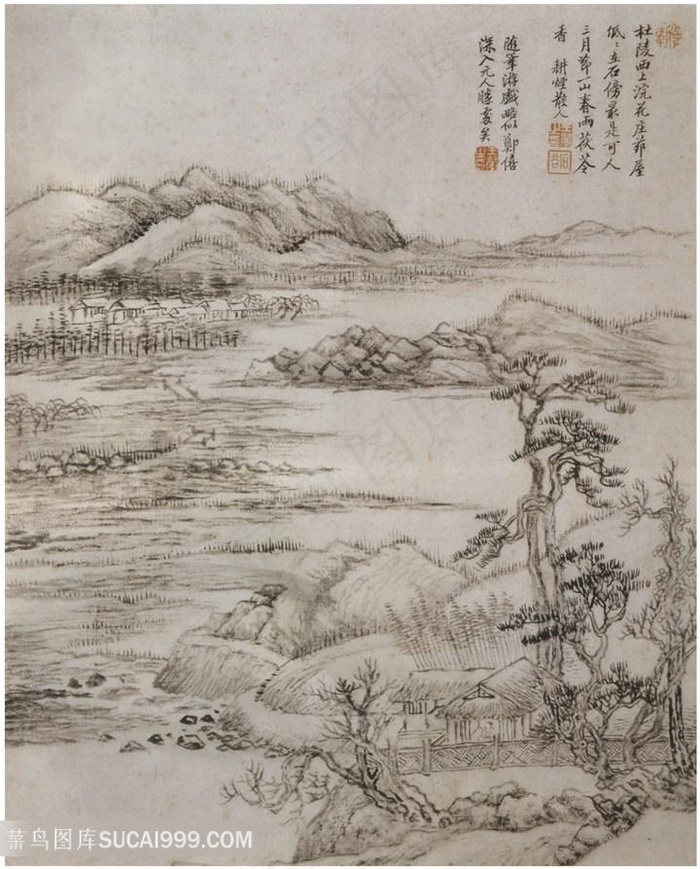 杜陵西上浣花庄茆屋
低々立石傍最是可人
三月节一山春雨茯苓
香 耕烟散人
随笔游戏略似郑僖
深入元人胜处矣
菜鸟图库SUCAI999.COM